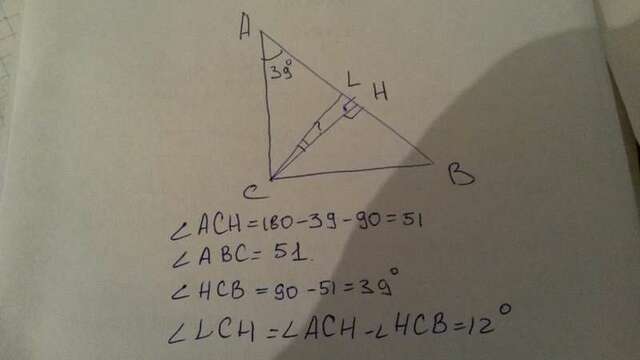 A
39°
L
H
?
C
B
∠ACH=180-39-90=51
∠ABC=51.
∠HCB=90-51=39°
∠LCH=∠ACH-∠HCB=12°